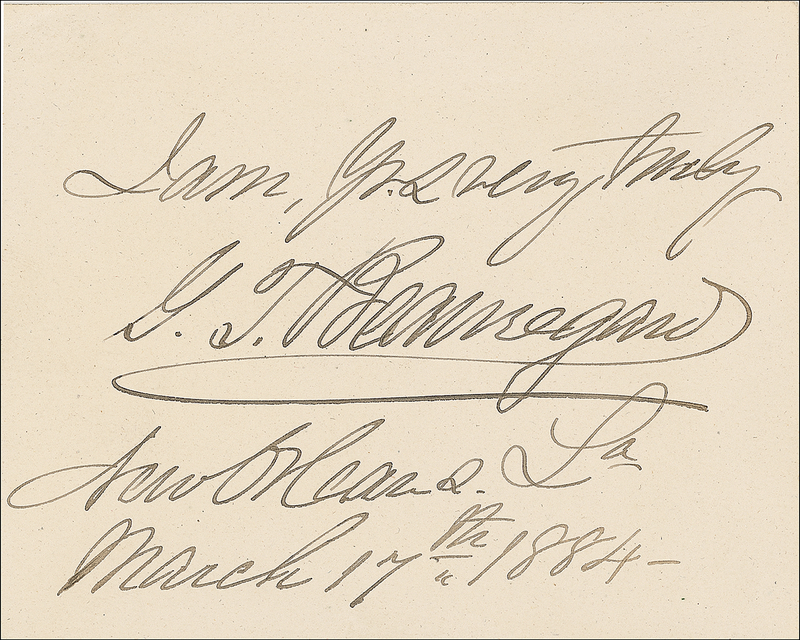 I am, Yrs very truly
G. T. Beauregard
New Orleans. La
March 17th 1884-